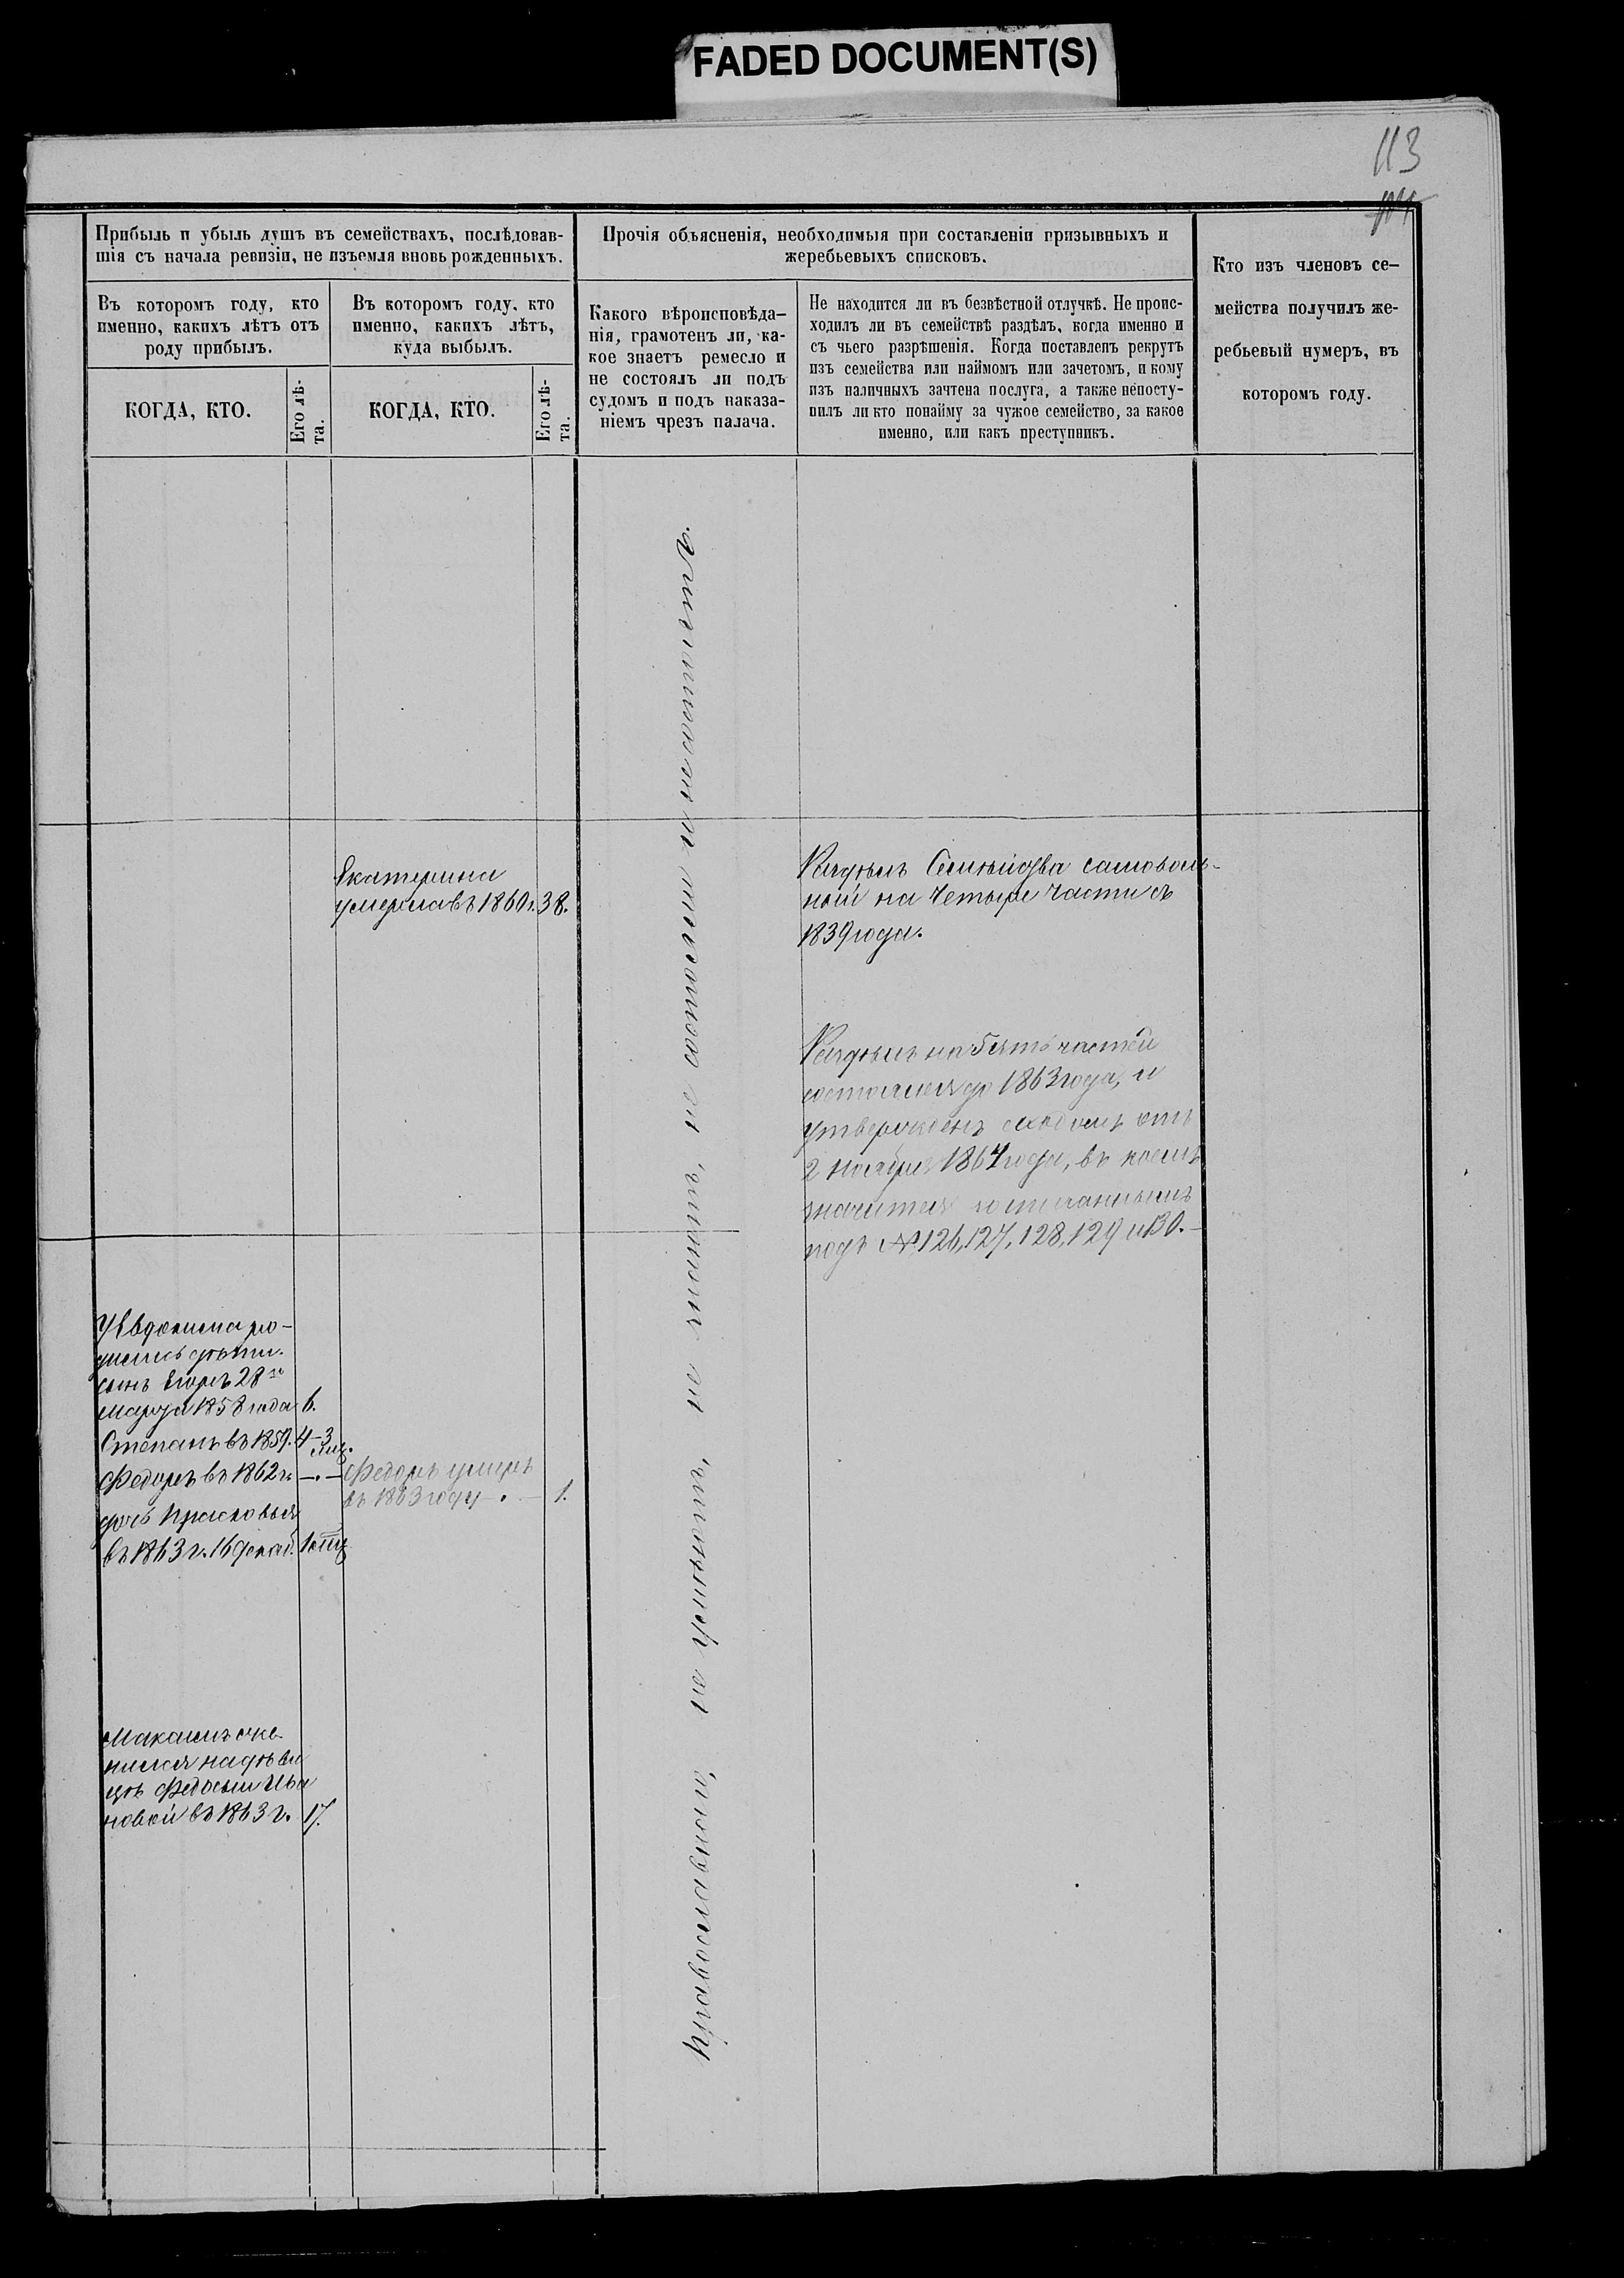 FADED DOCUMENT(S)
113
Прибыль и убыль душъ въ семействахъ, послѣдовав-
шія съ начала ревизіи, не изъемля вновь рожденныхъ.
Въ которомъ году, кто
именно, какихъ лѣтъ отъ
роду прибылъ.
КОГДА, КТО.
Его лѣ-
та.
Въ которомъ году, кто
именно, какихъ лѣтъ,
куда выбылъ.
КОГДА, КТО.
Его лѣ-
та.
Прочія объясненія, необходимыя при составленіи призывныхъ и
жеребьевыхъ списковъ.
Какого вѣроисповѣда-
нія, грамотенъ ли, ка-
кое знаетъ ремесло и
не состоялъ ли подъ
судомъ и подъ наказа-
ніемъ чрезъ палача.
Не находится ли въ безвѣстной отлучкѣ. Не проис-
ходилъ ли въ семействѣ раздѣлъ, когда именно и
съ чьего разрѣшенія. Когда поставленъ рекрутъ
изъ семейства или наймомъ или зачетомъ, и кому
изъ наличныхъ зачтена послуга, а также непосту-
пилъ ли кто понайму за чужое семейство, за какое
именно, или какъ преступникъ.
Кто изъ членовъ се-
мейства получилъ же-
ребьевый нумеръ, въ
которомъ году.
Екатерина
умерла въ 1860 г. 38.
Раздѣлъ Семейства самоволь-
ный на четыре части съ
1839 года.
Раздѣлъ на 5ять частей
состоялся до 1863 года, и
утвержденъ сходомъ отъ
2 Ноября 1864 года, въ коемъ
значится
подъ № 126, 127, 128, 129 и 130.
У Евдокима ро-
дились дѣти.
сынъ Егоръ 28го
марта 1858 года 6.
Степанъ въ 1859. 4–3 мѣц.
Федоръ въ 1862 г. —.—
дочь Прасковья
въ 1863 г. 16 декаб. 1 мѣц
Федоръ умеръ
въ 1863 году —.— 1.
Максимъ оже-
нился на дѣви
цѣ Федосьи Ива
новой въ 1863 г. 17.
Православной,